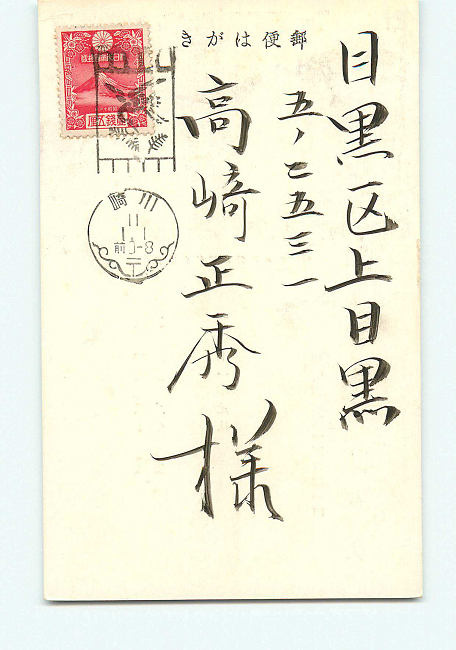 郵便はがき
目黒区上目黒
五ノ二五三一
高崎正秀様
川崎
11
1 1
前0-8
〒